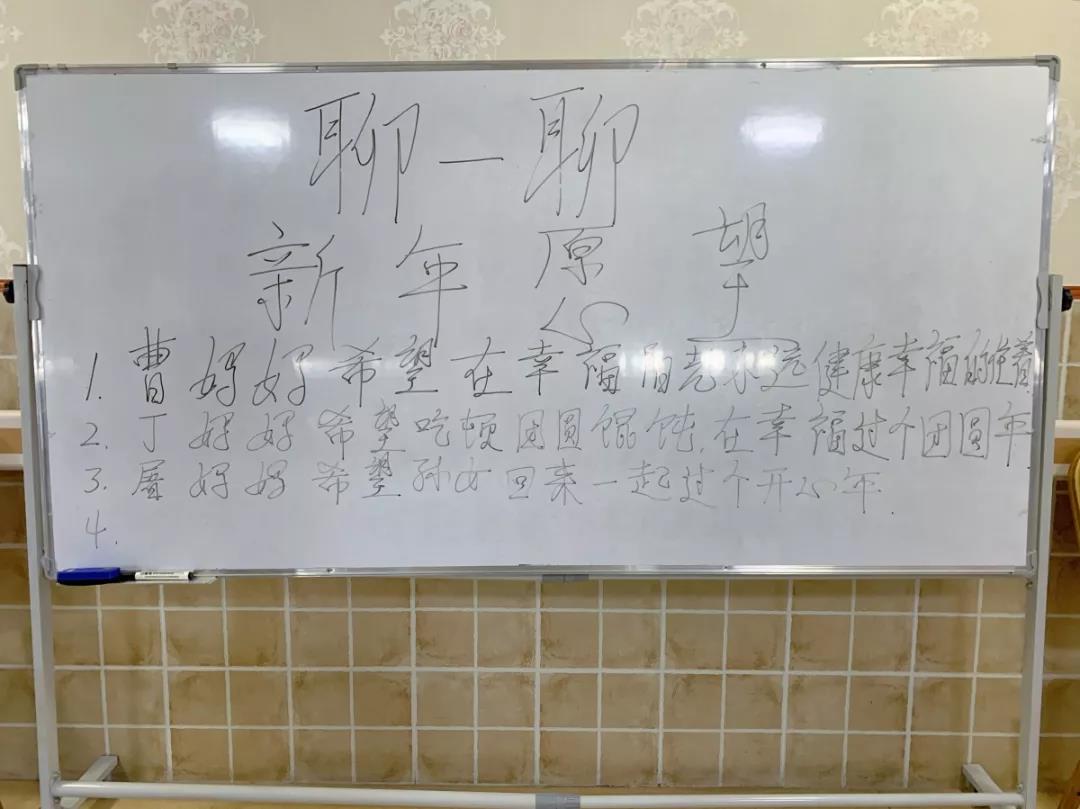 聊一聊
新年愿望
1. 曹妤好希望在幸福的老永远健康幸福的生着
2. 丁好好希望吃顿团圆馄饨.在幸福过个团圆年
3. 屠好好希望孙女回来一起过个开心年.
4.